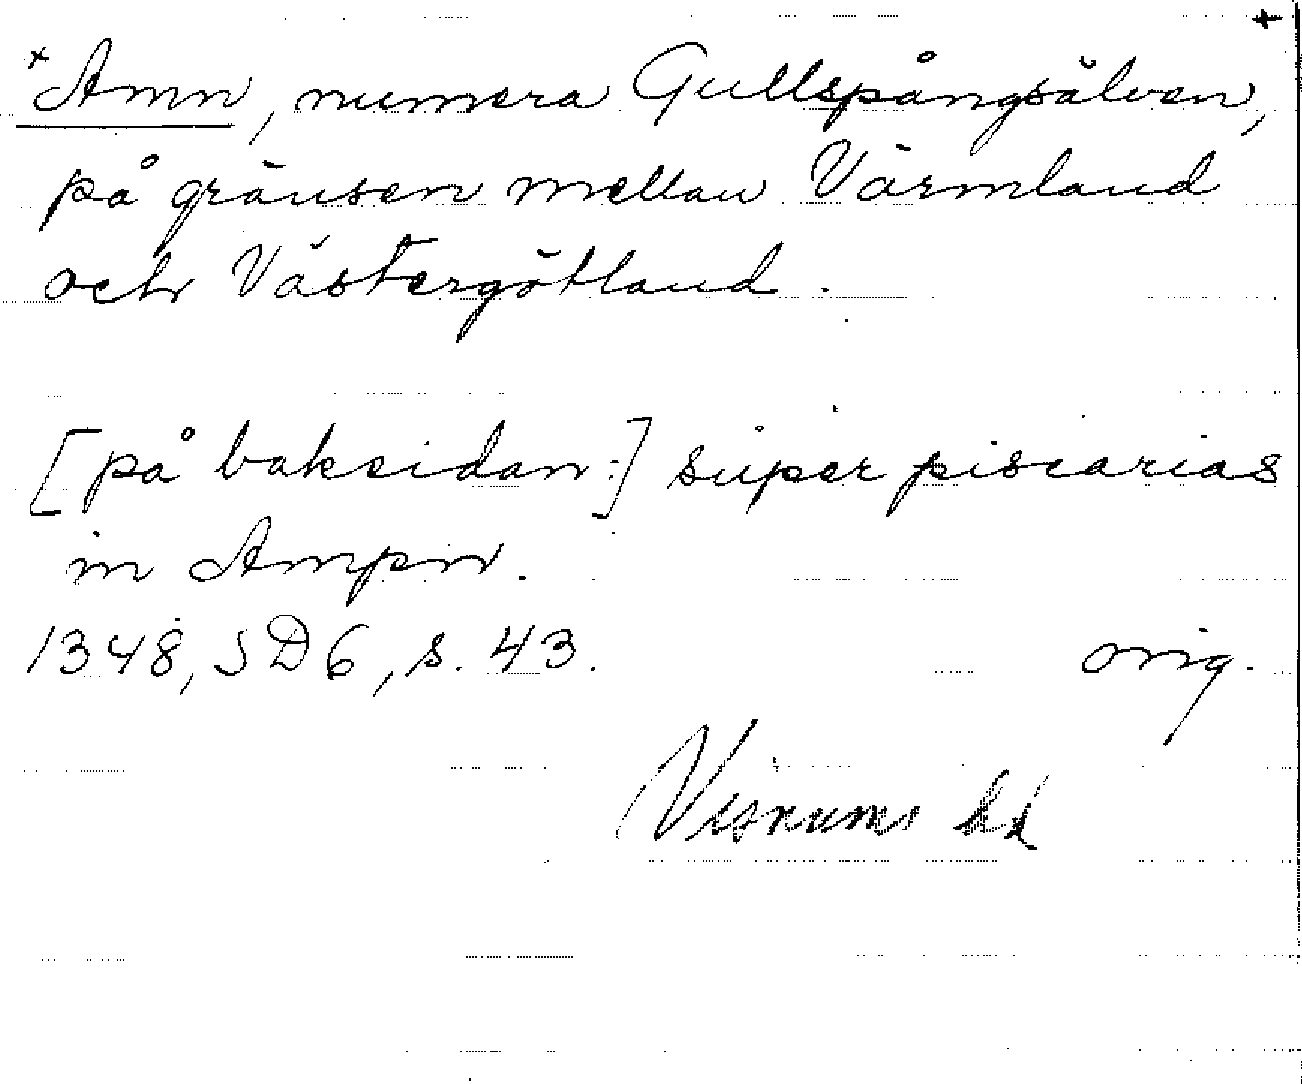 +
*Amn, numera Gullspångsälven,
på gränsen mellan Värmland
och Västergötland.
[på baksidan:] super piscarias
in Ampn.
1348, SD 6, s. 43. orig.
Visnums hd